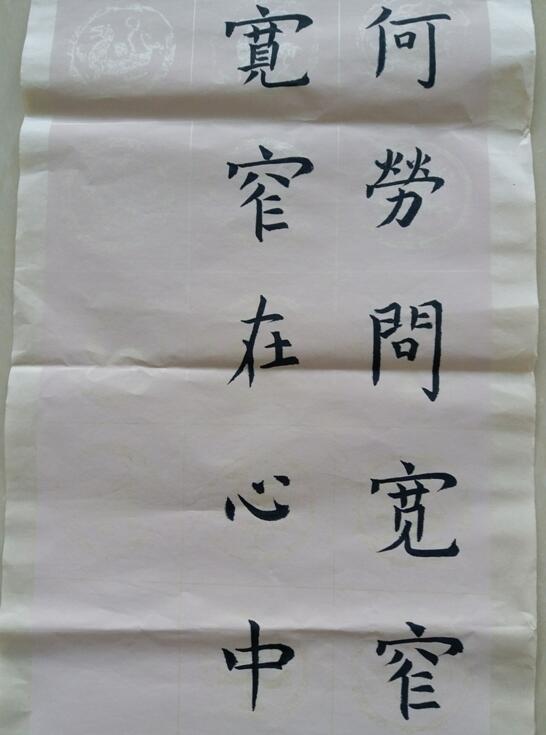 何勞問宽窄
寬窄在心中